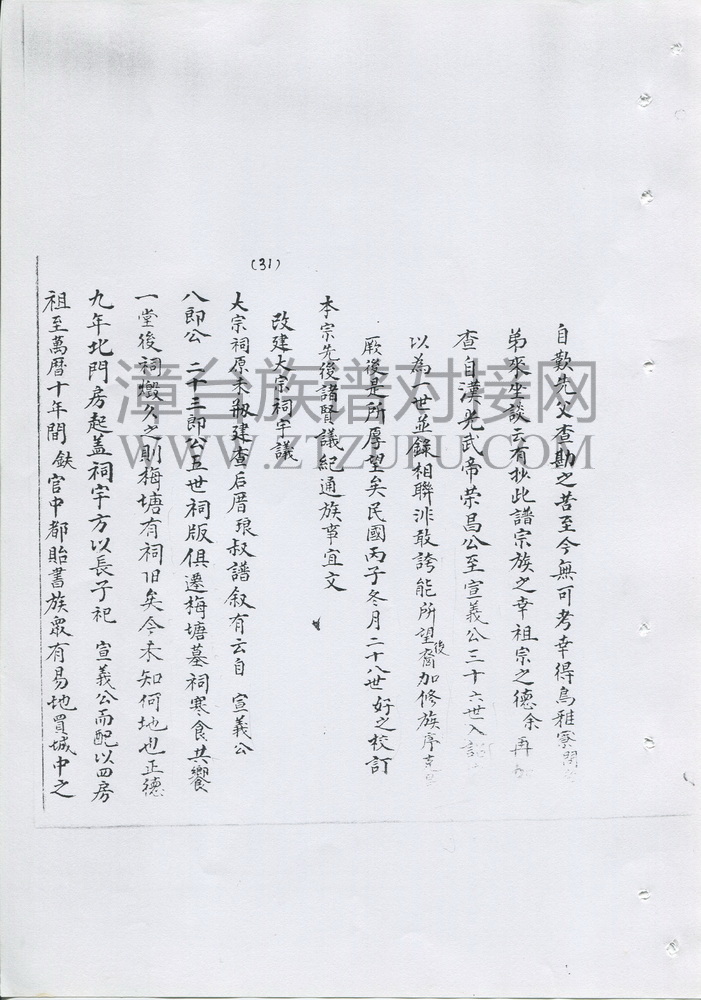 (31)
自歎先父查勘之苦至今無可考幸得烏雅寮
弟來坐談云有抄此譜宗族之幸祖宗之德余再
查自漢光武帝荣昌公至宣義公三十六世入
以為一世並錄相聯非敢誇能所望裔後加修族序
厥後是所厚望矣民國丙子冬月二十八世好之校訂
本宗先後諸賢議紀通族事宜文
改建大宗祠宇議
大宗祠原未剏建查后厝琅叔譜叙有云自 宣義公
八郎公 二十三郎公五世祠版俱遷梅塘墓祠寒食共饗
一堂後祠燬久之則梅塘有祠旧矣今未知何地也正德
九年北門房起盖祠宇方以長子祀 宣義公而配以四房
祖至萬曆十年間 鈇官中都貽書族眾有易地買城中之
漳台族谱对接网
WWW.ZTZUPU.COM